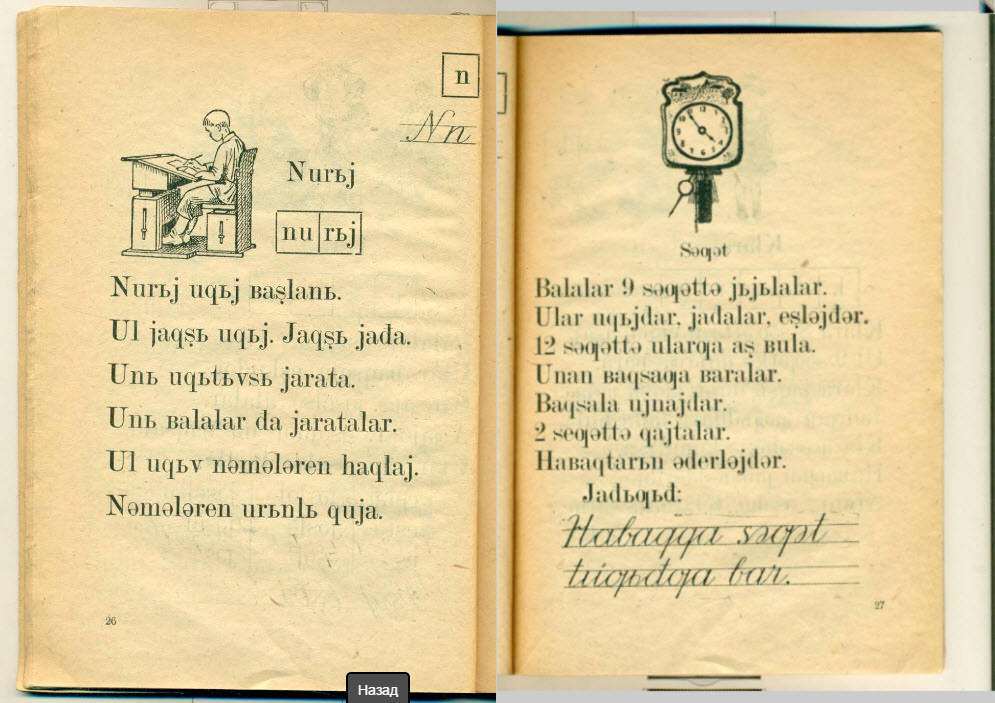 n
Nn
Nurьj
nu rьj
Nurьj uqьj ʙaşlanь.
Ul jaqşь uqьj. Jaqşь jađa.
Unь uqьtьvsь jarata.
Unь ʙalalar đa jaratalar.
Ul uqьv nəmələren haqlaj.
Nəmələren urьnlь quja.
26
Səƣət
Balalar 9 səƣəttə jьjьlalar.
Ular uqьjđar, jađalar, eşləjđər.
12 səƣəttə ularƣa aş ʙula.
Unan ʙaqsaƣa ʙaralar.
Baqsala ujnajđar.
2 seƣəttə qajtalar.
Haʙaqtarьn əđerləjđər.
Jađьƣьđ:
Habaqqa səƣət
tuƣьđƣa bar.
27
Назад